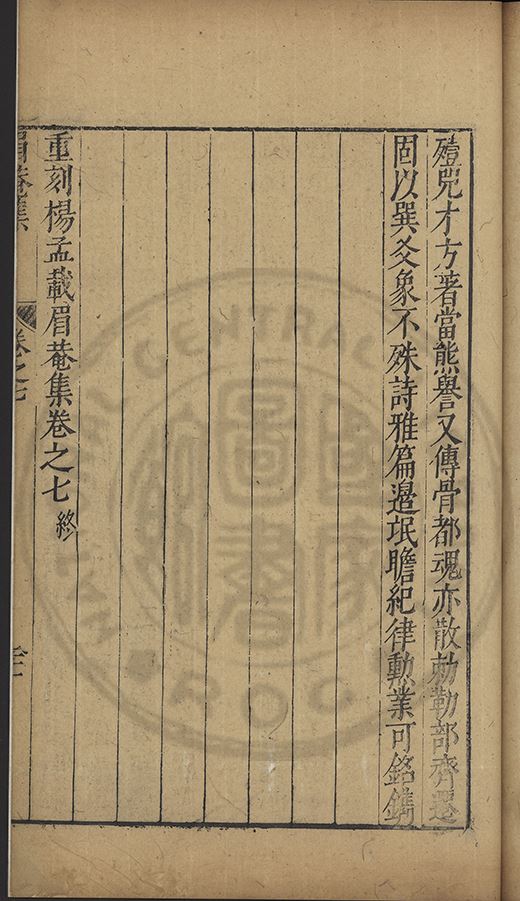 殪兕才方著當熊譽又傳骨都魂亦散勅勒部齊遷
固以巽爻象不殊詩雅篇邉氓瞻紀律勳業可銘鐫
重刻楊孟載眉菴集卷之七 終
眉菴集 卷之七